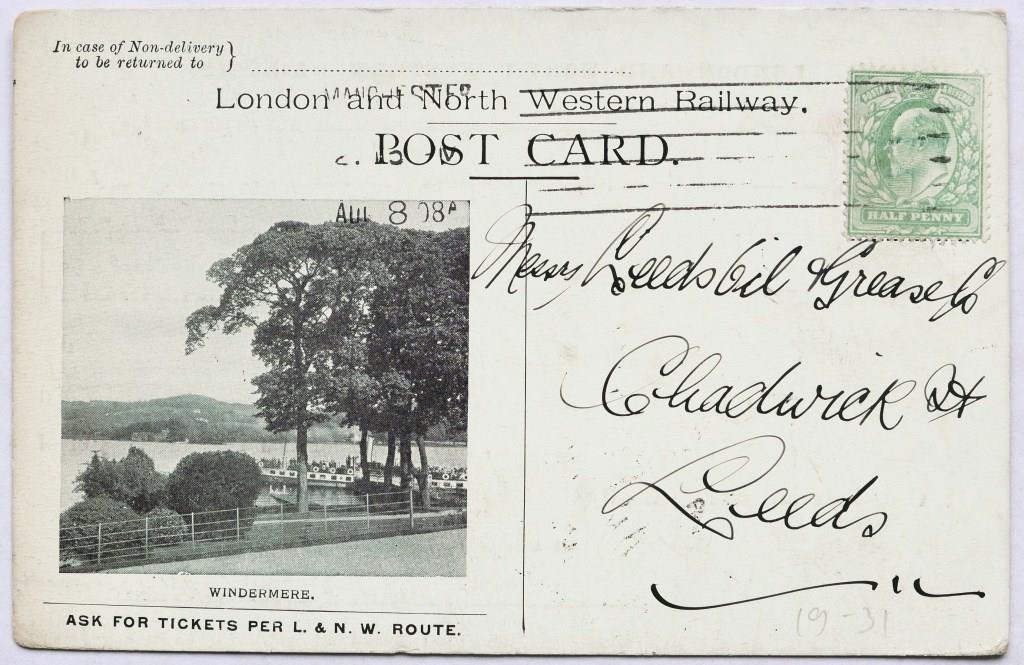 In case of Non-delivery
to be returned to
MANCHESTER
London and North Western Railway.
POST CARD.
HALF PENNY
AUG 8 08 A
Messrs Leeds Oil & Grease Co
Chadwick St
Leeds
WINDERMERE.
ASK FOR TICKETS PER L. & N. W. ROUTE.
19-31